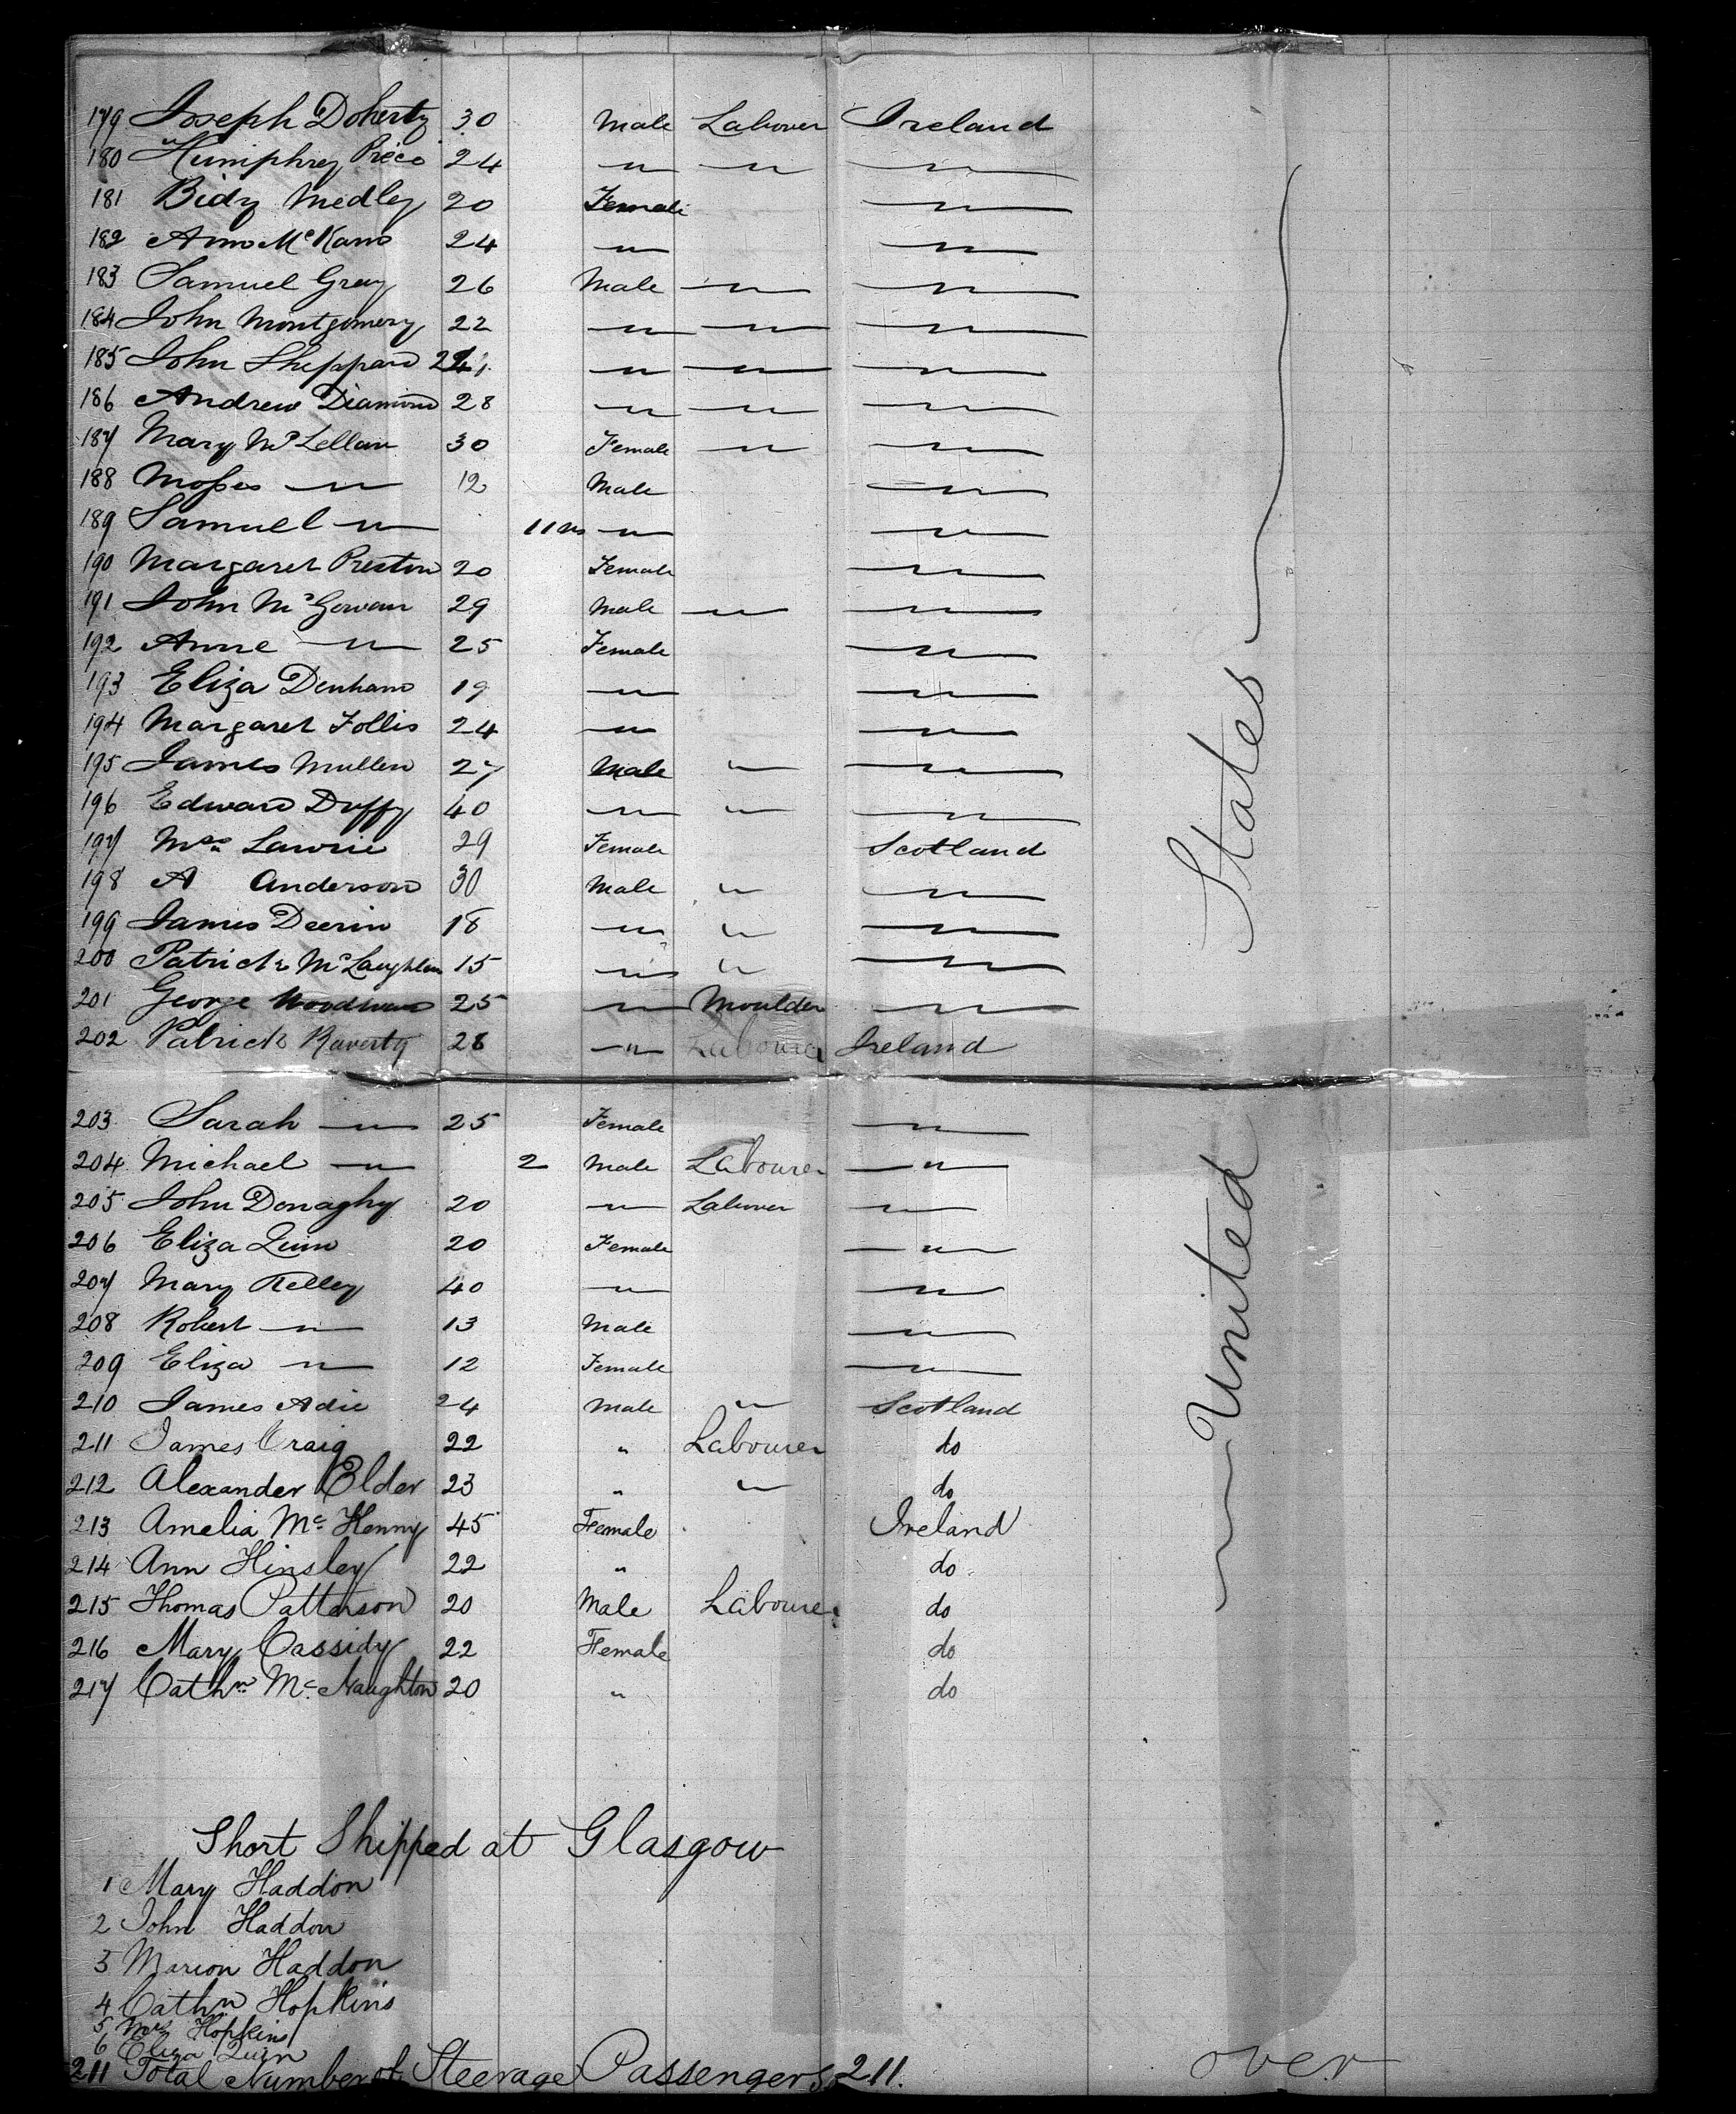 179 Joseph Doherty 30 Male Labourer Ireland
180 Humphrey Price 24 " " "
181 Bidy Medley 20 Female "
182 Ann McKane 24 " "
183 Samuel Gray 26 Male " "
184 John Montgomery 22 " " "
185 John Sheppard " " "
186 Andrew Diamond 28 " " "
187 Mary McLellan 30 Female " "
188 Moses " 12 Male "
189 Samuel " 11 ms " "
190 Margaret Preston 20 Female "
191 John McGowan 29 Male " "
192 Anne " 25 Female "
193 Eliza Denham 19 " "
194 Margaret Follis 24 " "
195 James Mullen 27 Male " "
196 Edward Duffy 40 " " "
197 Mrs Lawrie 29 Female Scotland
198 A Anderson 30 Male " "
199 James Deerin 18 " " "
200 Patrick McLaughlan 15 " " "
201 George Woodward 25 " Moulder "
202 Patrick Raverty 28 " Labourer Ireland
203 Sarah " 25 Female "
204 Michael " 2 Male Labourer "
205 John Donaghy 20 " Labourer "
206 Eliza Quinn 20 Female "
207 Mary Kelley 40 " "
208 Robert " 13 Male "
209 Eliza " 12 Female "
210 James Adie 24 Male " Scotland
211 James Craig 22 " Labourer do
212 Alexander Elder 23 " " do
213 Amelia Mc Henny 45 Female Ireland
214 Ann Hinsley 22 " do
215 Thomas Patterson 20 Male Labourer do
216 Mary Cassidy 22 Female do
217 Cathn Mc Naughton 20 " do
United States
Short Shipped at Glasgow
1 Mary Haddon
2 John Haddon
3 Marion Haddon
4 Cathn Hopkins
5 Mrs Hopkins
6 Eliza Quin
211 Total Number of Steerage Passengers 211.
over